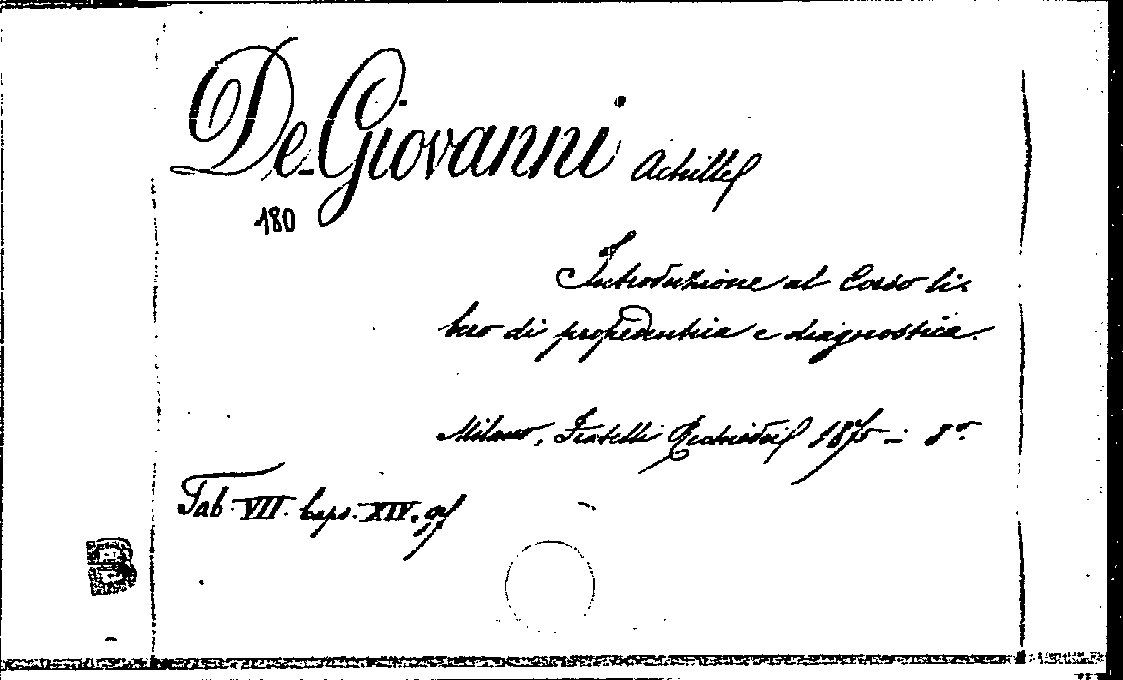 De-Giovanni Achille
180
Introduzione al Corso li-
bero di propedeutica e diagnostica.
Milano, Fratelli Rechiedei 1875 - 8º.
Tab. VII. Caps. XIV.
B